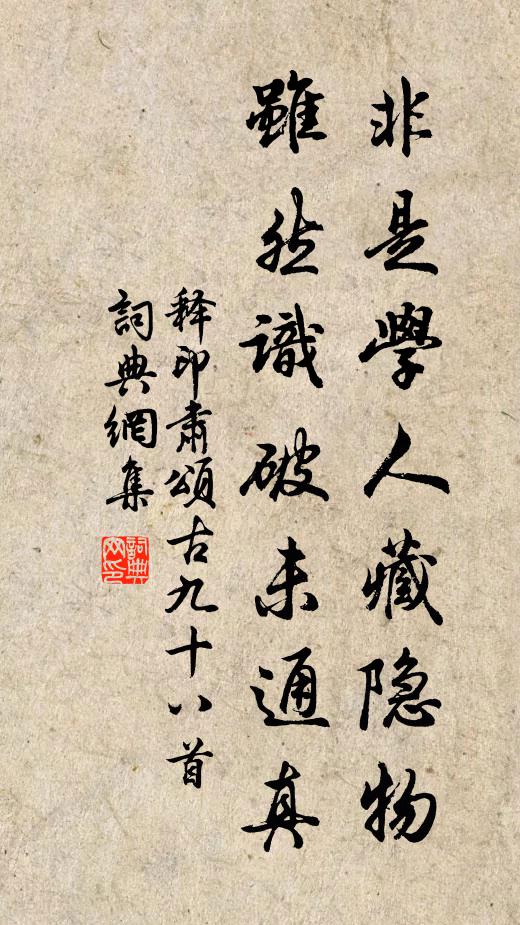 非是學人藏隐物
雖然識破未通真
释印肃頌古九十八首
詞典網集
詞典网印